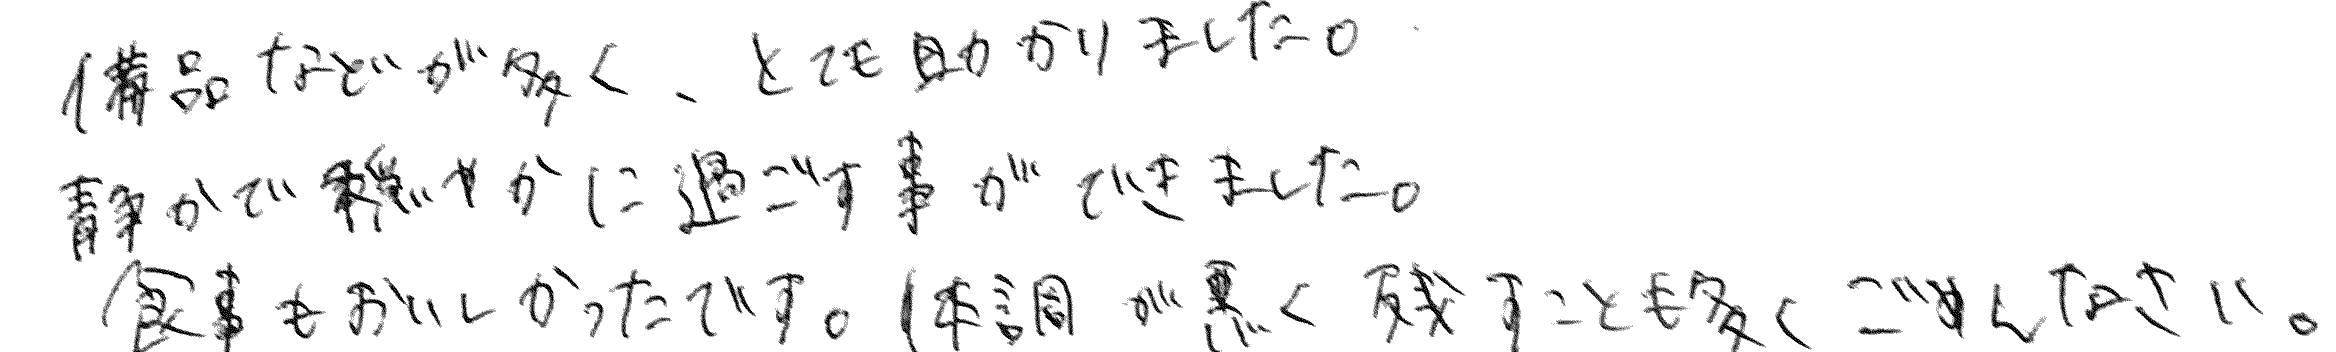 備品などが多く、とても助かりました。
静かで穏やかに過ごす事ができました。
食事もおいしかったです。体調が悪く残すことも多くごめんなさい。